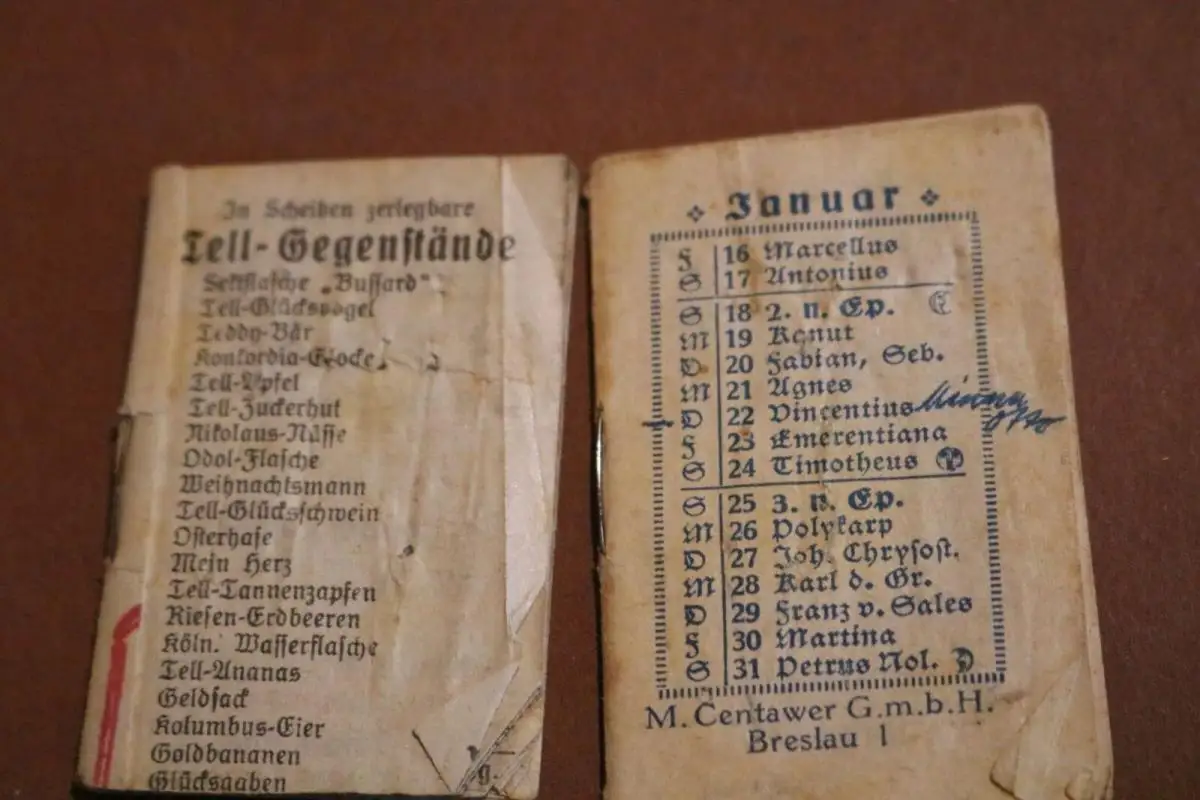 In Scheiben zerlegbare
Tell-Gegenstände
Sektflasche „Bussard"
Tell-Glücksvogel
Teddy-Bär
Konkordia-Glocke
Tell-Apfel
Tell-Zuckerhut
Nikolaus-Nüsse
Odol-Flasche
Weihnachtsmann
Tell-Glücksschwein
Osterhase
Mein Herz
Tell-Tannenzapfen
Riesen-Erdbeeren
Köln. Wasserflasche
Tell-Ananas
Geldsack
Kolumbus-Eier
Goldbananen
Glücksgaben
Januar
F 16 Marcellus
S 17 Antonius
S 18 2. n. Ep.
M 19 Kanut
D 20 Fabian, Seb.
M 21 Agnes
D 22 Vincentius
F 23 Emerentiana
S 24 Timotheus
S 25 3. n. Ep.
M 26 Polykarp
D 27 Joh. Chrysost.
M 28 Karl d. Gr.
D 29 Franz v. Sales
F 30 Martina
S 31 Petrus Nol.
M. Centawer G.m.b.H.
Breslau 1